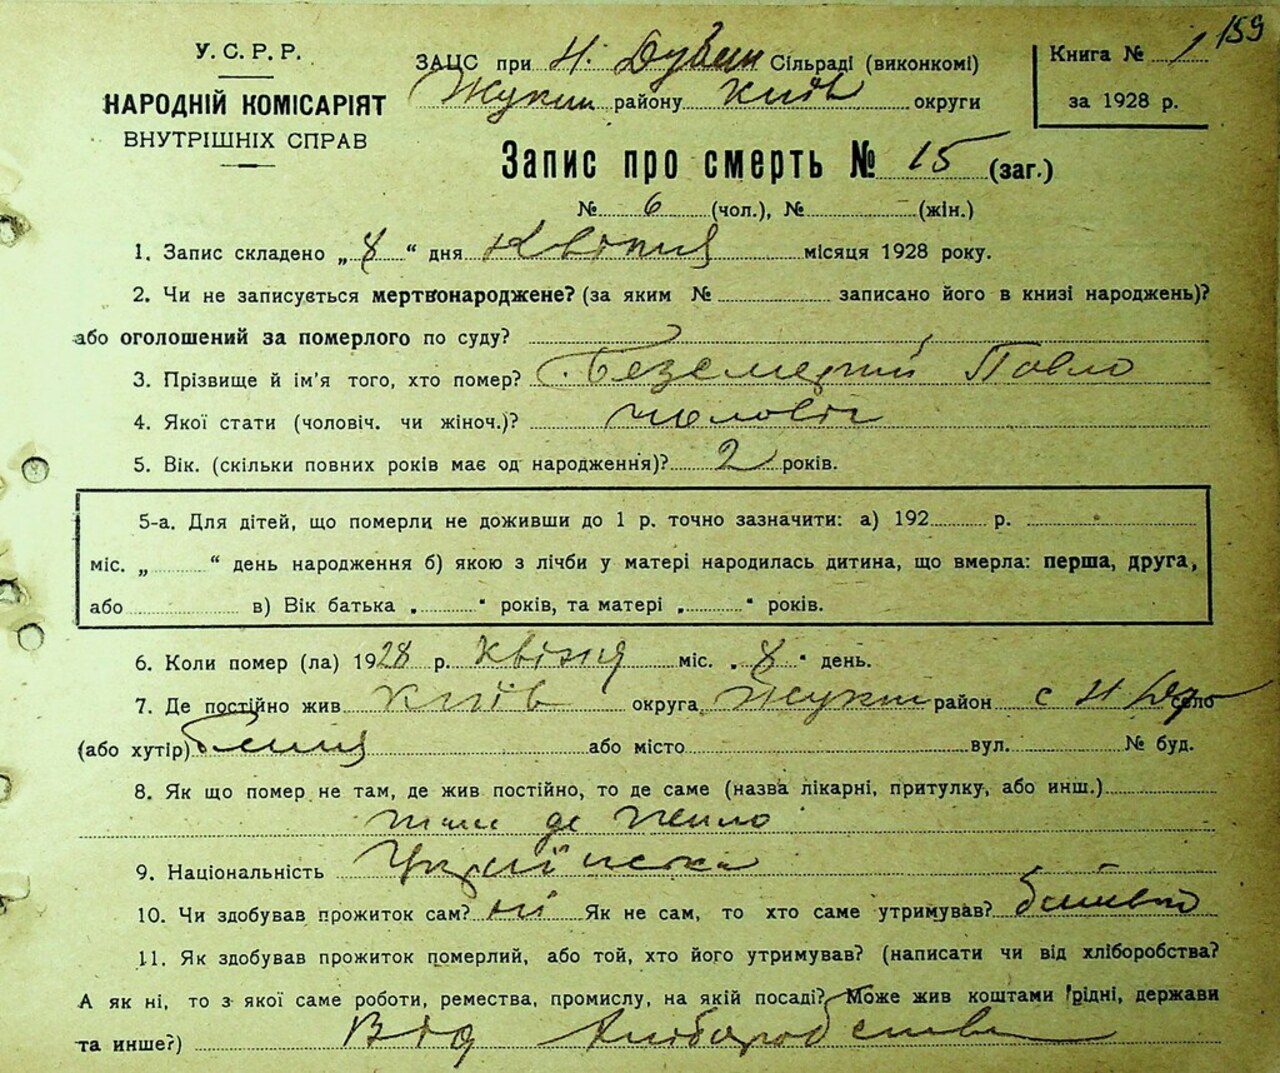 159
У. С. Р. Р.
НАРОДНІЙ КОМІСАРІЯТ
ВНУТРІШНІХ СПРАВ
ЗАЦС при Н. Дубеч Сільраді (виконкомі)
Жукин району Київ округи
Книга № 1
за 1928 р.
Запис про смерть № 15 (заг.)
№ 6 (чол.), № - (жін.)
1. Запис складено „ 8 “ дня Квітня місяця 1928 року.
2. Чи не записується мертвонароджене? (за яким № записано його в книзі народжень)?
або оголошений за померлого по суду?
3. Прізвище й ім'я того, хто помер? Безсмертний Павло
4. Якої стати (чоловіч. чи жіноч.)? чоловіч
5. Вік. (скільки повних років має од народження)? 2 років.
5-а. Для дітей, що померли не доживши до 1 р. точно зазначити: а) 192 р.
міс. „ “ день народження б) якою з лічби у матері народилась дитина, що вмерла: перша, друга,
або в) Вік батька „ “ років, та матері „ “ років.
6. Коли помер (ла) 1928 р. квітня міс. „ 8 “ день.
7. Де постійно жив Київ округа Жукин район с Н село
(або хутір) або місто вул. № буд.
8. Як що помер не там, де жив постійно, то де саме (назва лікарні, притулку, або инш.)
там де жило
9. Національність Українська
10. Чи здобував прожиток сам? ні Як не сам, то хто саме утримував? батько
11. Як здобував прожиток померлий, або той, хто його утримував? (написати чи від хліборобства?
А як ні, то з якої саме роботи, ремества, промислу, на якій посаді? Може жив коштами рідні, держави
та инше?) Від хліборобства